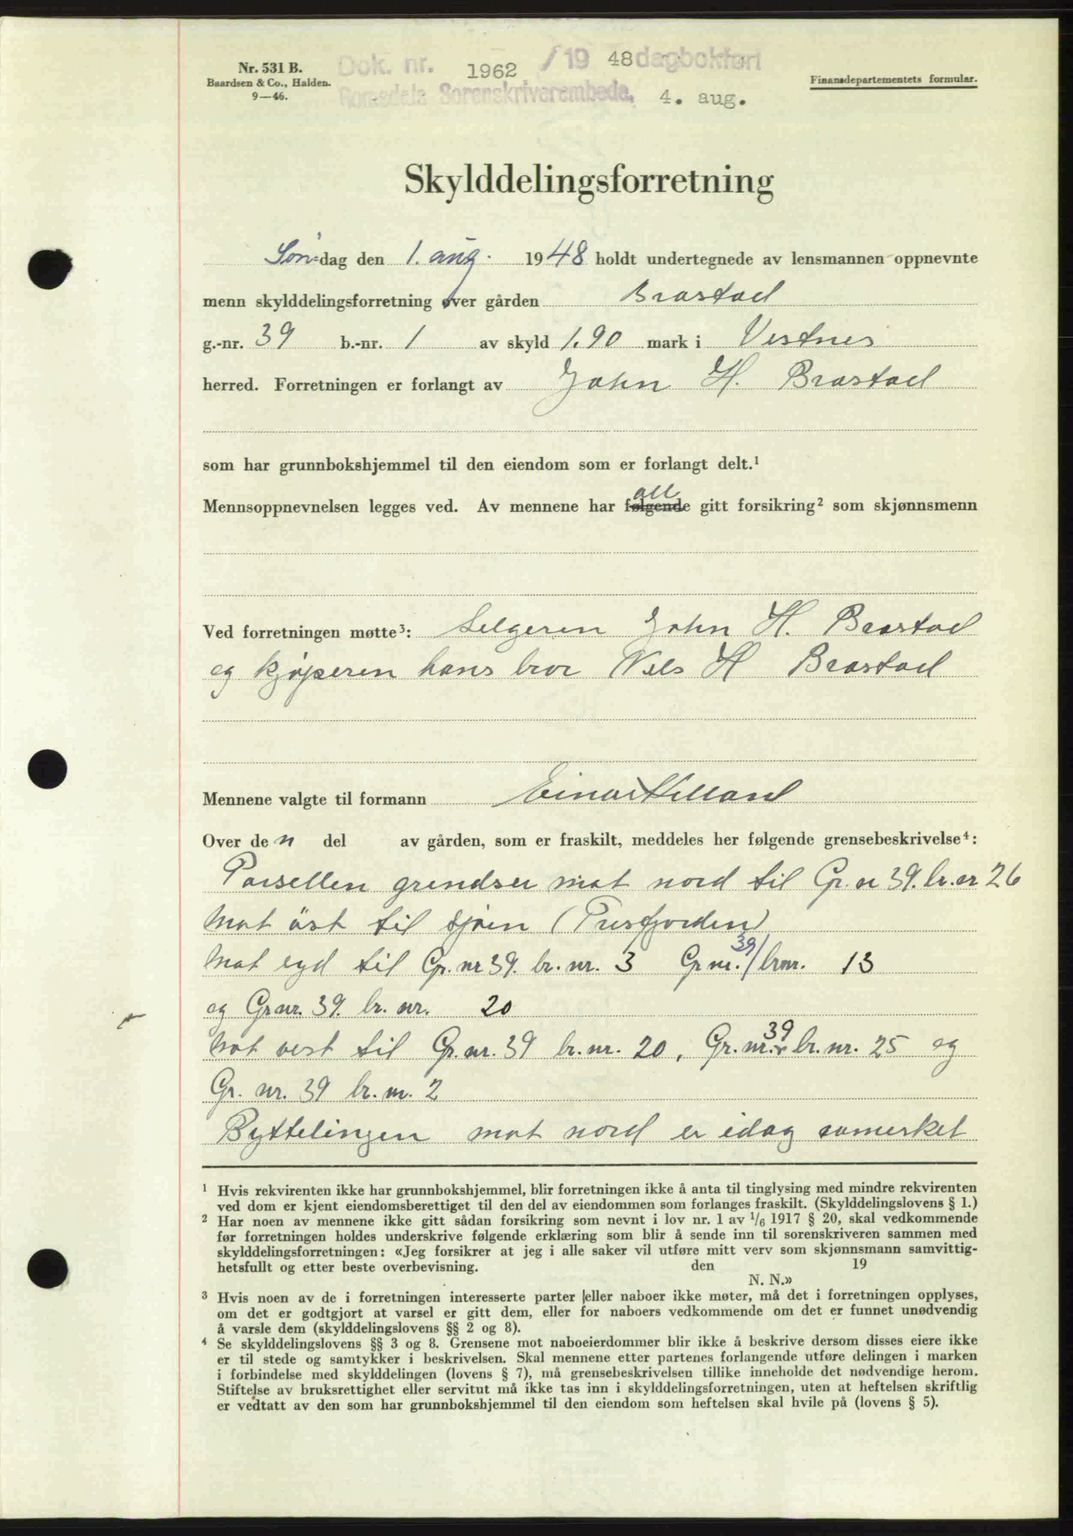 Nr. 531 B.
Baardsen & Co., Halden.
9—46.
Dok. nr. 1962 /19 48 dagbokført
Romsdals Sorenskriverembede, 4. aug.
Finansdepartementets formular.
Skylddelingsforretning
Søndag den 1. aug. 1948 holdt undertegnede av lensmannen oppnevnte
menn skylddelingsforretning over gården Brastad
g.-nr. 39 b.-nr. 1 av skyld 1.90 mark i Vestnes
herred. Forretningen er forlangt av John H. Brastad
som har grunnbokshjemmel til den eiendom som er forlangt delt.¹
all
Mennsoppnevnelsen legges ved. Av mennene har følgende gitt forsikring² som skjønnsmenn
Ved forretningen møtte³: Selgeren John H. Brastad
og kjøperen hans bror Nils H Brastad
Mennene valgte til formann Einar
Over den del av gården, som er fraskilt, meddeles her følgende grensebeskrivelse⁴:
Parsellen grendser mot nord til Gr. nr 39. br. nr 26
Mot øst til sjøen (Tresfjorden)
Mot syd til Gr. nr 39. br. nr. 3 Gr nr. 39/ brnr. 13
og Gr nr. 39. br. nr. 20
Mot vest til Gr. nr. 39 br. nr. 20, Gr. nr. 39 br. nr. 25 og
Gr. nr. 39 br. nr. 2
Byttelingen mot nord er idag
¹ Hvis rekvirenten ikke har grunnbokshjemmel, blir forretningen ikke å anta til tinglysing med mindre rekvirenten
ved dom er kjent eiendomsberettiget til den del av eiendommen som forlanges fraskilt. (Skylddelingslovens § 1.)
² Har noen av mennene ikke gitt sådan forsikring som nevnt i lov nr. 1 av 1/6 1917 § 20, skal vedkommende
før forretningen holdes underskrive følgende erklæring som blir å sende inn til sorenskriveren sammen med
skylddelingsforretningen: «Jeg forsikrer at jeg i alle saker vil utføre mitt verv som skjønnsmann samvittig-
hetsfullt og etter beste overbevisning. den 19
N. N.»
³ Hvis noen av de i forretningen interesserte parter eller naboer ikke møter, må det i forretningen opplyses,
om det er godtgjort at varsel er gitt dem, eller for naboers vedkommende om det er funnet unødvendig
å varsle dem (skylddelingslovens §§ 2 og 8).
⁴ Se skylddelingslovens §§ 3 og 8. Grensene mot naboeierdommer blir ikke å beskrive dersom disses eiere ikke
er til stede og samtykker i beskrivelsen. Skal mennene etter partenes forlangende utføre delingen i marken
i forbindelse med skylddelingen (lovens § 7), må grensebeskrivelsen tillike inneholde det nødvendige herom.
Stiftelse av bruksrettighet eller servitut må ikke tas inn i skylddelingsforretningen, uten at heftelsen skriftlig
er vedtatt av den som har grunnbokshjemmel til den eiendom som heftelsen skal hvile på (lovens § 5).